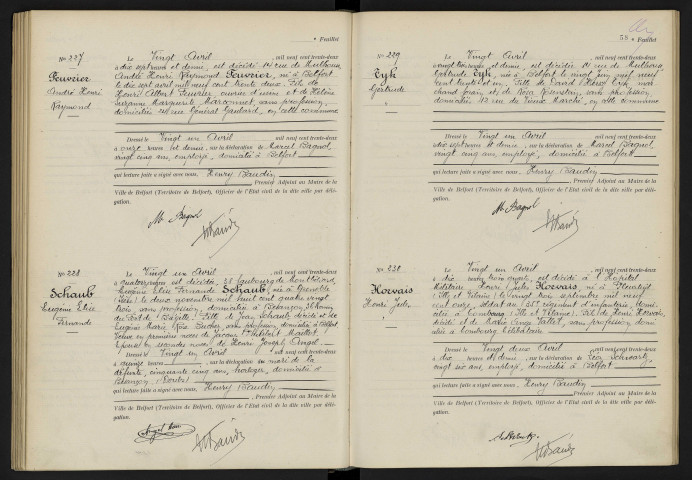 Feuillet
N° 227
Feuvrier
André Henri
Raymond
Le Vingt Avril, mil neuf cent trente-deux
à dix sept heures et demie, est décédé, 14 rue de Mulhouse,
André Henri Raymond Feuvrier, né à Belfort
le dix sept avril mil neuf cent trente deux. Fils de
Henri Albert Feuvrier, ouvrier d'usine et de Hélène
Suzanne Marguerite Marconnet, sans profession,
domiciliés rue Général Gaulard, en cette commune
Dressé le Vingt un Avril, mil neuf cent trente-deux
à onze heures et demie, sur la déclaration de Marcel Bagnol
vingt cinq ans, employé, domicilié à Belfort
qui lecture faite a signé avec nous, Henry Baudin
, Premier Adjoint au Maire de la
Ville de Belfort (Territoire de Belfort), Officier de l'Etat civil de la dite ville par délé-
gation.
M. Bagnol
N° 228
Schaub
Eugénie Elise
Fernande
Le Vingt un Avril, mil neuf cent trente-deux
à quatorze heures est décédée, faubourg de Montbéliard
Eugénie Elise Fernande Schaub, née à Grenoble
(Isère) le deux novembre mil huit cent quatre vingt
trois, sans profession, domiciliée à Besançon
Fille de Jean Schaub décédé et de
Eugénie Marie Rose Bucher, sans profession, domiciliée à Belfort
Veuve en premières noces de Jacques
Epouse en secondes noces de Henri Joseph Angel
Dressé le Vingt un Avril, mil neuf cent trente-deux
à quinze heures, sur la déclaration du mari de la
défunte, cinquante cinq ans, horloger, domicilié à
Besançon (Doubs)
qui lecture faite a signé avec nous, Henry Baudin
, Premier Adjoint au Maire de la
Ville de Belfort (Territoire de Belfort), Officier de l'Etat civil de la dite ville par délé-
gation.
58 Feuillet
N° 229
Eyk
Gertrude
Le Vingt Avril, mil neuf cent trente-deux
à vingt trois heures et demie, est décédée 14 rue de Mulhouse,
Gertrude Eyk, née à Belfort le vingt juin mil neuf
cent trente et un. Fille de David Eyk, mar
chand forain et de Rosa, sans profession,
domiciliés 12 rue du Vieux Marché, en cette commune
Dressé le Vingt un Avril, mil neuf cent trente-deux
à dix heures et demie, sur la déclaration de Marcel Bagnol,
vingt cinq ans, employé, domicilié à Belfort
qui lecture faite a signé avec nous, Henry Baudin
, Premier Adjoint au Maire de la
Ville de Belfort (Territoire de Belfort), Officier de l'Etat civil de la dite ville par délé-
gation.
M. Bagnol
N° 230
Horvais
Henri Jules
Le Vingt un Avril, mil neuf cent trente-deux
à seize heures trois quarts, est décédé à l'Hôpital
Militaire, Henri Jules Horvais, né à
(Ille et Vilaine) le vingt trois septembre mil neuf
cent onze, soldat au régiment d'infanterie, domi-
cilié à Combourg (Ille et Vilaine). Fils de Henri Horvais,
décédé et de Marie Vallet, sans profession, domi
ciliée à Combourg. Célibataire
Dressé le Vingt deux Avril, mil neuf cent trente-deux
à dix heures et demie, sur la déclaration de Léon Schwartz,
vingt six ans, employé, domicilié à Belfort
qui lecture faite a signé avec nous, Henry Baudin
, Premier Adjoint au Maire de la
Ville de Belfort (Territoire de Belfort), Officier de l'Etat civil de la dite ville par délé-
gation.